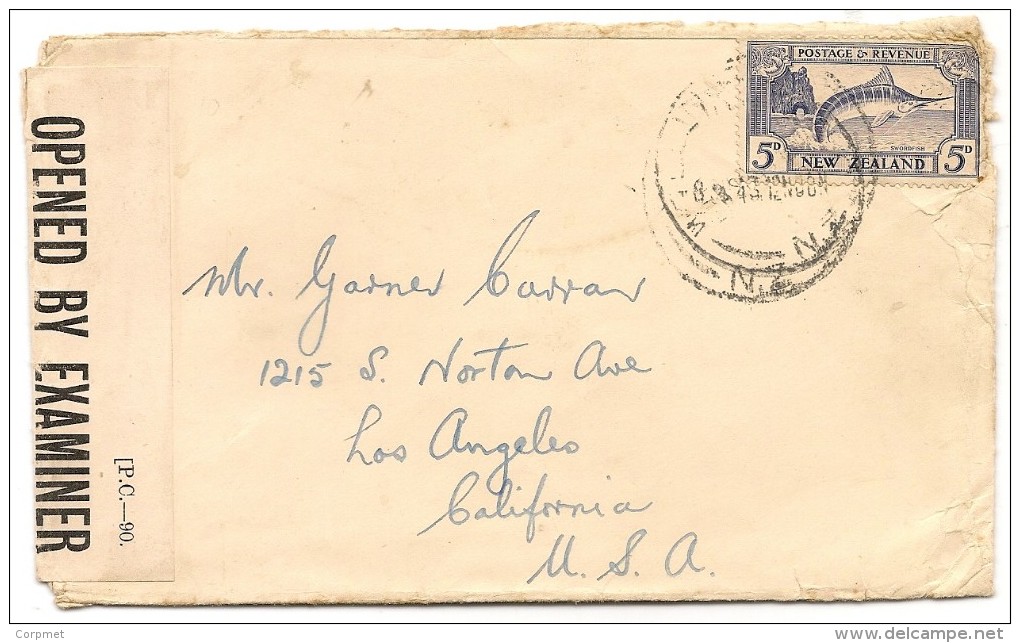 POSTAGE & REVENUE
SWORDFISH
5D NEW ZEALAND 5D
N.Z.
N.Z.
OPENED BY EXAMINER
[P.C.—90.
Mr. Garner Carran
1215 S. Norton Ave
Los Angeles
California
U. S. A.
Corpmet
delcampe.net